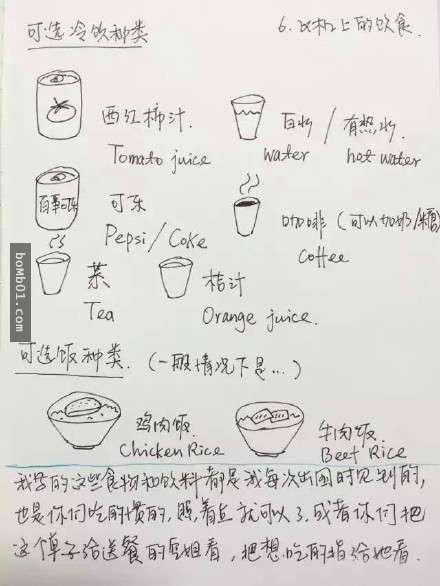 可选冷饮种类
6. 飞机上的饮食.
西红柿汁.
Tomato juice
白水 / 有热水.
water
hot water
百事可乐
可乐
Pepsi/Coke
咖啡 (可以加奶/糖)
Coffee
茶
Tea
桔汁
Orange juice.
可选饭种类. (一般情况下是...)
鸡肉饭
Chicken Rice
牛肉饭.
Beef Rice
我写的这些食物和饮料都是我每次出国时见到的,
也是你们吃的惯的, 照着点就可以了. 或者你们把
这个单子给送餐的空姐看, 把想吃的指给她看.
bomb01.com